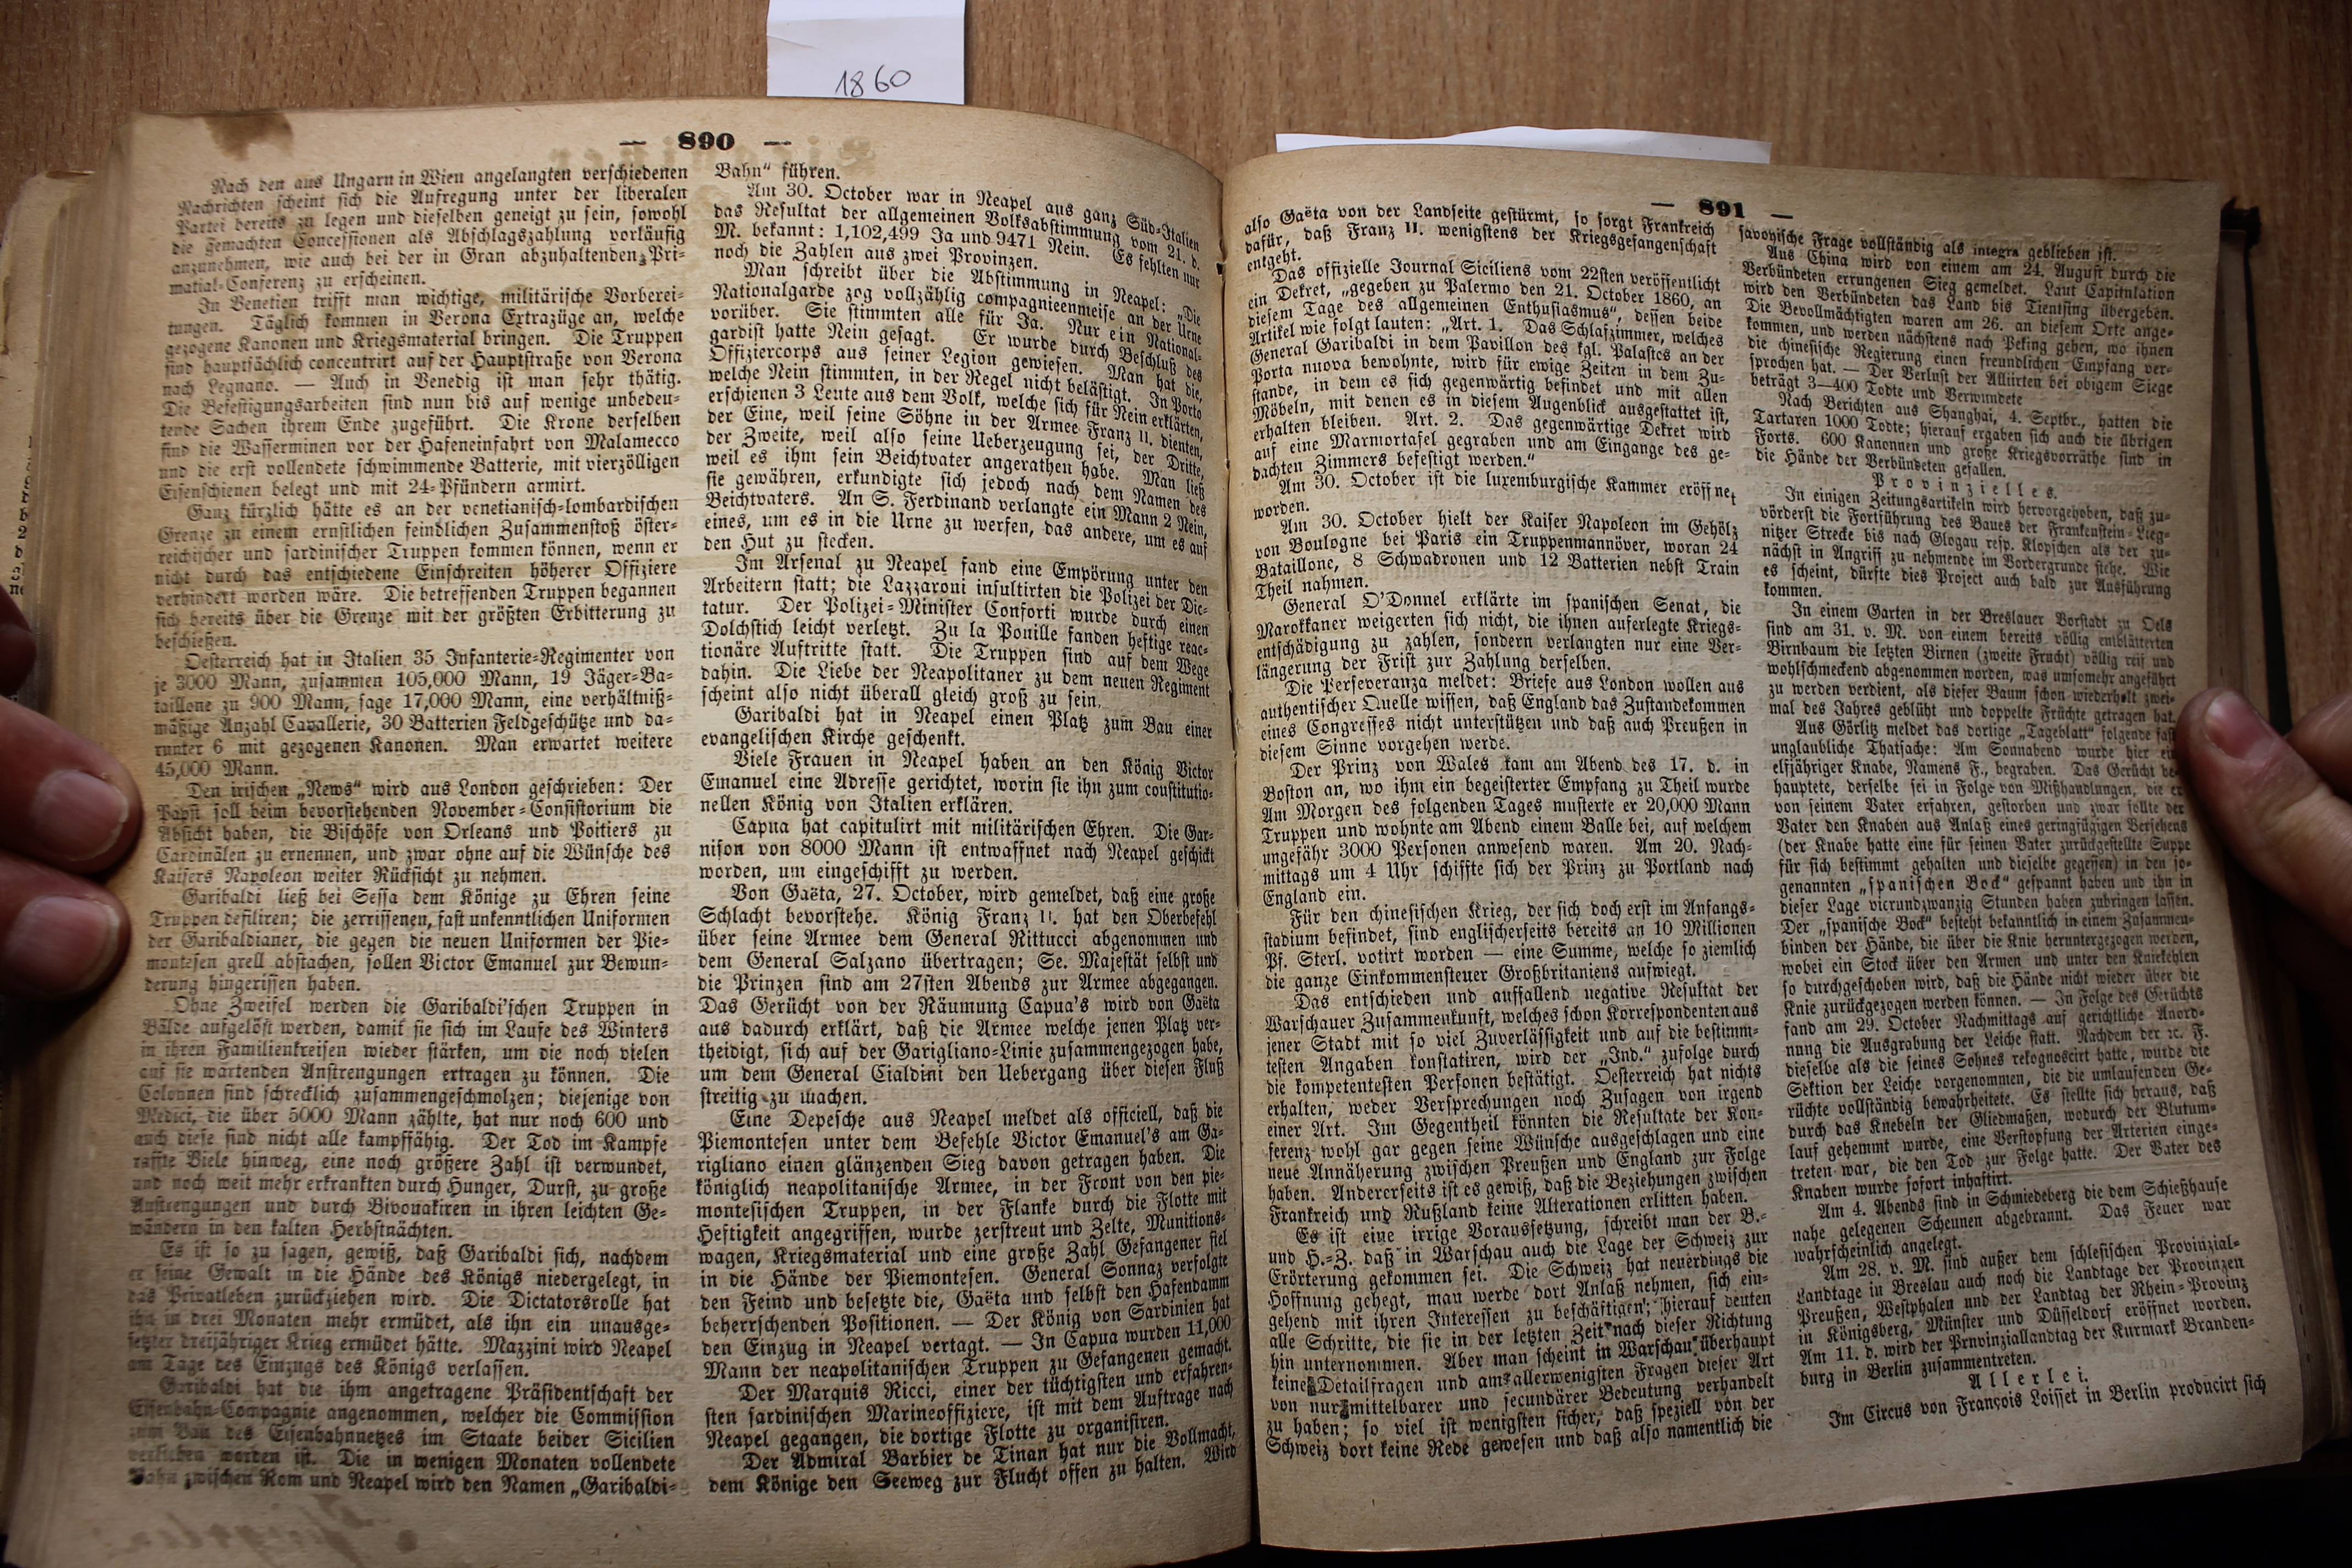 1860
— 890 —
Nach den aus Ungarn in Wien angelangten verschiedenen
Nachrichten scheint sich die Aufregung unter der liberalen
Partei bereits zu legen und dieselben geneigt zu sein, sowohl
die gemachten Concessionen als Abschlagszahlung vorläufig
anzunehmen, wie auch bei der in Gran abzuhaltenden Pri-
matial-Conferenz zu erscheinen.
In Venetien trifft man wichtige, militärische Vorberei-
tungen. Täglich kommen in Verona Extrazüge an, welche
gezogene Kanonen und Kriegsmaterial bringen. Die Truppen
sind hauptsächlich concentrirt auf der Hauptstraße von Verona
nach Legnano. — Auch in Venedig ist man sehr thätig.
Die Befestigungsarbeiten sind nun bis auf wenige unbedeu-
tende Sachen ihrem Ende zugeführt. Die Krone derselben
sind die Wasserminen vor der Hafeneinfahrt von Malamecco
und die erst vollendete schwimmende Batterie, mit vierzölligen
Eisenschienen belegt und mit 24-Pfündern armirt.
Ganz kürzlich hätte es an der venetianisch-lombardischen
Grenze zu einem ernstlichen feindlichen Zusammenstoß öster-
reichischer und sardinischer Truppen kommen können, wenn er
nicht durch das entschiedene Einschreiten höherer Offiziere
verhindert worden wäre. Die betreffenden Truppen begannen
sich bereits über die Grenze mit der größten Erbitterung zu
beschießen.
Oesterreich hat in Italien 35 Infanterie-Regimenter von
je 3000 Mann, zusammen 105,000 Mann, 19 Jäger-Ba-
taillone zu 900 Mann, sage 17,000 Mann, eine verhältniß-
mäßige Anzahl Cavallerie, 30 Batterien Feldgeschütze und da-
runter 6 mit gezogenen Kanonen. Man erwartet weitere
45,000 Mann.
Den irischen „News“ wird aus London geschrieben: Der
Papst soll beim bevorstehenden November-Consistorium die
Absicht haben, die Bischöfe von Orleans und Poitiers zu
Cardinälen zu ernennen, und zwar ohne auf die Wünsche des
Kaisers Napoleon weiter Rücksicht zu nehmen.
Garibaldi ließ bei Sessa dem Könige zu Ehren seine
Truppen defiliren; die zerrissenen, fast unkenntlichen Uniformen
der Garibaldianer, die gegen die neuen Uniformen der Pie-
montesen grell abstachen, sollen Victor Emanuel zur Bewun-
derung hingerissen haben.
Ohne Zweifel werden die Garibaldi'schen Truppen in
Bälde aufgelöst werden, damit sie sich im Laufe des Winters
in ihren Familienkreisen wieder stärken, um die noch vielen
auf sie wartenden Anstrengungen ertragen zu können. Die
Colonnen sind schrecklich zusammengeschmolzen; diejenige von
Medici, die über 5000 Mann zählte, hat nur noch 600 und
auch diese sind nicht alle kampffähig. Der Tod im Kampfe
raffte Viele hinweg, eine noch größere Zahl ist verwundet,
und noch weit mehr erkrankten durch Hunger, Durst, zu große
Anstrengungen und durch Bivouakiren in ihren leichten Ge-
wändern in den kalten Herbstnächten.
Es ist so zu sagen, gewiß, daß Garibaldi sich, nachdem
er seine Gewalt in die Hände des Königs niedergelegt, in
das Privatleben zurückziehen wird. Die Dictatorsrolle hat
ihn in drei Monaten mehr ermüdet, als ihn ein unausge-
setzter dreijähriger Krieg ermüdet hätte. Mazzini wird Neapel
am Tage des Einzugs des Königs verlassen.
Garibaldi hat die ihm angetragene Präsidentschaft der
Eisenbahn-Compagnie angenommen, welcher die Commission
zum Bau des Eisenbahnnetzes im Staate beider Sicilien
verliehen worden ist. Die in wenigen Monaten vollendete
Bahn zwischen Rom und Neapel wird den Namen „Garibaldi-
Bahn“ führen.
Am 30. October war in Neapel aus ganz Süd-Italien
das Resultat der allgemeinen Volksabstimmung vom 21. d.
M. bekannt: 1,102,499 Ja und 9471 Nein. Es fehlten nur
noch die Zahlen aus zwei Provinzen.
Man schreibt über die Abstimmung in Neapel: „Die
Nationalgarde zog vollzählig compagnieenweise an der Urne
vorüber. Sie stimmten alle für Ja. Nur ein National-
gardist hatte Nein gesagt. Er wurde durch Beschluß des
Offiziercorps aus seiner Legion gewiesen. Man hat die,
welche Nein stimmten, in der Regel nicht belästigt. In Porto
erschienen 3 Leute aus dem Volk, welche sich für Nein erklärten,
der Eine, weil seine Söhne in der Armee Franz II. dienten,
der Zweite, weil also seine Ueberzeugung sei, der Dritte,
weil es ihm sein Beichtvater angerathen habe. Man ließ
sie gewähren, erkundigte sich jedoch nach dem Namen des
Beichtvaters. An S. Ferdinand verlangte ein Mann 2 Nein,
eines, um es in die Urne zu werfen, das andere, um es auf
den Hut zu stecken.
Im Arsenal zu Neapel fand eine Empörung unter den
Arbeitern statt; die Lazzaroni insultirten die Polizei der Dic-
tatur. Der Polizei-Minister Conforti wurde durch einen
Dolchstich leicht verletzt. Zu la Ponille fanden heftige reac-
tionäre Auftritte statt. Die Truppen sind auf dem Wege
dahin. Die Liebe der Neapolitaner zu dem neuen Regiment
scheint also nicht überall gleich groß zu sein.
Garibaldi hat in Neapel einen Platz zum Bau einer
evangelischen Kirche geschenkt.
Viele Frauen in Neapel haben an den König Victor
Emanuel eine Adresse gerichtet, worin sie ihn zum constitutio-
nellen König von Italien erklären.
Capua hat capitulirt mit militärischen Ehren. Die Gar-
nison von 8000 Mann ist entwaffnet nach Neapel geschickt
worden, um eingeschifft zu werden.
Von Gaëta, 27. October, wird gemeldet, daß eine große
Schlacht bevorstehe. König Franz II. hat den Oberbefehl
über seine Armee dem General Rittucci abgenommen und
dem General Salzano übertragen; Se. Majestät selbst und
die Prinzen sind am 27sten Abends zur Armee abgegangen.
Das Gerücht von der Räumung Capua's wird von Gaëta
aus dadurch erklärt, daß die Armee welche jenen Platz ver-
theidigt, sich auf der Garigliano-Linie zusammengezogen habe,
um dem General Cialdini den Uebergang über diesen Fluß
streitig zu machen.
Eine Depesche aus Neapel meldet als officiell, daß die
Piemontesen unter dem Befehle Victor Emanuel's am Ga-
rigliano einen glänzenden Sieg davon getragen haben. Die
königlich neapolitanische Armee, in der Front von den pie-
montesischen Truppen, in der Flanke durch die Flotte mit
Heftigkeit angegriffen, wurde zerstreut und Zelte, Munitions-
wagen, Kriegsmaterial und eine große Zahl Gefangener fiel
in die Hände der Piemontesen. General Sonnaz verfolgte
den Feind und besetzte die, Gaëta und selbst den Hafendamm
beherrschenden Positionen. — Der König von Sardinien hat
den Einzug in Neapel vertagt. — In Capua wurden 11,000
Mann der neapolitanischen Truppen zu Gefangenen gemacht.
Der Marquis Ricci, einer der tüchtigsten und erfahren-
sten sardinischen Marineoffiziere, ist mit dem Auftrage nach
Neapel gegangen, die dortige Flotte zu organisiren.
Der Admiral Barbier de Tinan hat nur die Vollmacht,
dem Könige den Seeweg zur Flucht offen zu halten. Wird
— 891 —
also Gaëta von der Landseite gestürmt, so sorgt Frankreich
dafür, daß Franz II. wenigstens der Kriegsgefangenschaft
entgeht.
Das offizielle Journal Siciliens vom 22sten veröffentlicht
ein Dekret, „gegeben zu Palermo den 21. October 1860, an
diesem Tage des allgemeinen Enthusiasmus“, dessen beide
Artikel wie folgt lauten: „Art. 1. Das Schlafzimmer, welches
General Garibaldi in dem Pavillon des kgl. Palastes an der
Porta nuova bewohnte, wird für ewige Zeiten in dem Zu-
stande, in dem es sich gegenwärtig befindet und mit allen
Möbeln, mit denen es in diesem Augenblick ausgestattet ist,
erhalten bleiben. Art. 2. Das gegenwärtige Dekret wird
auf eine Marmortafel gegraben und am Eingange des ge-
dachten Zimmers befestigt werden.“
Am 30. October ist die luxemburgische Kammer eröffnet
worden.
Am 30. October hielt der Kaiser Napoleon im Gehölz
von Boulogne bei Paris ein Truppenmannöver, woran 24
Bataillone, 8 Schwadronen und 12 Batterien nebst Train
Theil nahmen.
General O'Donnel erklärte im spanischen Senat, die
Marokkaner weigerten sich nicht, die ihnen auferlegte Kriegs-
entschädigung zu zahlen, sondern verlangten nur eine Ver-
längerung der Frist zur Zahlung derselben.
Die Perseveranza meldet: Briefe aus London wollen aus
authentischer Quelle wissen, daß England das Zustandekommen
eines Congresses nicht unterstützen und daß auch Preußen in
diesem Sinne vorgehen werde.
Der Prinz von Wales kam am Abend des 17. d. in
Boston an, wo ihm ein begeisterter Empfang zu Theil wurde
Am Morgen des folgenden Tages musterte er 20,000 Mann
Truppen und wohnte am Abend einem Balle bei, auf welchem
ungefähr 3000 Personen anwesend waren. Am 20. Nach-
mittags um 4 Uhr schiffte sich der Prinz zu Portland nach
England ein.
Für den chinesischen Krieg, der sich doch erst im Anfangs-
stadium befindet, sind englischerseits bereits an 10 Millionen
Pf. Sterl. votirt worden — eine Summe, welche so ziemlich
die ganze Einkommensteuer Großbritaniens aufwiegt.
Das entschieden und auffallend negative Resultat der
Warschauer Zusammenkunft, welches schon Korrespondenten aus
jener Stadt mit so viel Zuverlässigkeit und auf die bestimm-
testen Angaben konstatiren, wird der „Ind.“ zufolge durch
die kompetentesten Personen bestätigt. Oesterreich hat nichts
erhalten, weder Versprechungen noch Zusagen von irgend
einer Art. Im Gegentheil könnten die Resultate der Kon-
ferenz wohl gar gegen seine Wünsche ausgeschlagen und eine
neue Annäherung zwischen Preußen und England zur Folge
haben. Andererseits ist es gewiß, daß die Beziehungen zwischen
Frankreich und Rußland keine Alterationen erlitten haben.
Es ist eine irrige Voraussetzung, schreibt man der B.-
und H.-Z. daß in Warschau auch die Lage der Schweiz zur
Erörterung gekommen sei. Die Schweiz hat neuerdings die
Hoffnung gehegt, man werde dort Anlaß nehmen, sich ein-
gehend mit ihren Interessen zu beschäftigen; hierauf deuten
alle Schritte, die sie in der letzten Zeit nach dieser Richtung
hin unternommen. Aber man scheint in Warschau überhaupt
keine Detailfragen und am allerwenigsten Fragen dieser Art
von nur mittelbarer und secundärer Bedeutung verhandelt
zu haben; so viel ist wenigsten sicher, daß speziell von der
Schweiz dort keine Rede gewesen und daß also namentlich die
savoyische Frage vollständig als integra geblieben ist.
Aus China wird von einem am 24. August durch die
Verbündeten errungenen Sieg gemeldet. Laut Capitulation
wird den Verbündeten das Land bis Tientsing übergeben.
Die Bevollmächtigten waren am 26. an diesem Orte ange-
kommen, und werden nächstens nach Peking gehen, wo ihnen
die chinesische Regierung einen freundlichen Empfang ver-
sprochen hat. — Der Verlust der Alliirten bei obigem Siege
beträgt 3—400 Todte und Verwundete
Nach Berichten aus Shanghai, 4. Septbr., hatten die
Tartaren 1000 Todte; hierauf ergaben sich auch die übrigen
Forts. 600 Kanonnen und große Kriegsvorräthe sind in
die Hände der Verbündeten gefallen.
Provinzielles.
In einigen Zeitungsartikeln wird hervorgehoben, daß zu-
vörderst die Fortführung des Baues der Frankenstein-Lieg-
nitzer Strecke bis nach Glogau resp. Klopschen als der zu-
nächst in Angriff zu nehmende im Vordergrunde stehe. Wie
es scheint, dürfte dies Project auch bald zur Ausführung
kommen.
In einem Garten in der Breslauer Vorstadt zu Oels
sind am 31. v. M. von einem bereits völlig entblätterten
Birnbaum die letzten Birnen (zweite Frucht) völlig reif und
wohlschmeckend abgenommen worden, was umsomehr angeführt
zu werden verdient, als dieser Baum schon wiederholt zwei-
mal des Jahres geblüht und doppelte Früchte getragen hat.
Aus Görlitz meldet das dortige „Tageblatt“ folgende fast
unglaubliche Thatsache: Am Sonnabend wurde hier ein
elfjähriger Knabe, Namens F., begraben. Das Gerücht be-
hauptete, derselbe sei in Folge von Mißhandlungen, die er
von seinem Vater erfahren, gestorben und zwar sollte der
Vater den Knaben aus Anlaß eines geringfügigen Versehens
(der Knabe hatte eine für seinen Vater zurückgestellte Suppe
für sich bestimmt gehalten und dieselbe gegessen) in den so-
genannten „spanischen Bock“ gespannt haben und ihn in
dieser Lage vierundzwanzig Stunden haben zubringen lassen.
Der „spanische Bock“ besteht bekanntlich in einem Zusammen-
binden der Hände, die über die Knie heruntergezogen werden,
wobei ein Stock über den Armen und unter den Kniekehlen
so durchgeschoben wird, daß die Hände nicht wieder über die
Knie zurückgezogen werden können. — In Folge des Gerüchts
fand am 29. October Nachmittags auf gerichtliche Anord-
nung die Ausgrabung der Leiche statt. Nachdem der ꝛc. F.
dieselbe als die seines Sohnes rekognoscirt hatte, wurde die
Sektion der Leiche vorgenommen, die die umlaufenden Ge-
rüchte vollständig bewahrheitete. Es stellte sich heraus, daß
durch das Knebeln der Gliedmaßen, wodurch der Blutum-
lauf gehemmt wurde, eine Verstopfung der Arterien einge-
treten war, die den Tod zur Folge hatte. Der Vater des
Knaben wurde sofort inhaftirt.
Am 4. Abends sind in Schmiedeberg die dem Schießhause
nahe gelegenen Scheunen abgebrannt. Das Feuer war
wahrscheinlich angelegt.
Am 28. v. M. sind außer dem schlesischen Provinzial-
Landtage in Breslau auch noch die Landtage der Provinzen
Preußen, Westphalen und der Landtag der Rhein-Provinz
in Königsberg, Münster und Düsseldorf eröffnet worden.
Am 11. d. wird der Provinziallandtag der Kurmark Branden-
burg in Berlin zusammentreten.
Allerlei.
Im Circus von François Loisset in Berlin producirt sich